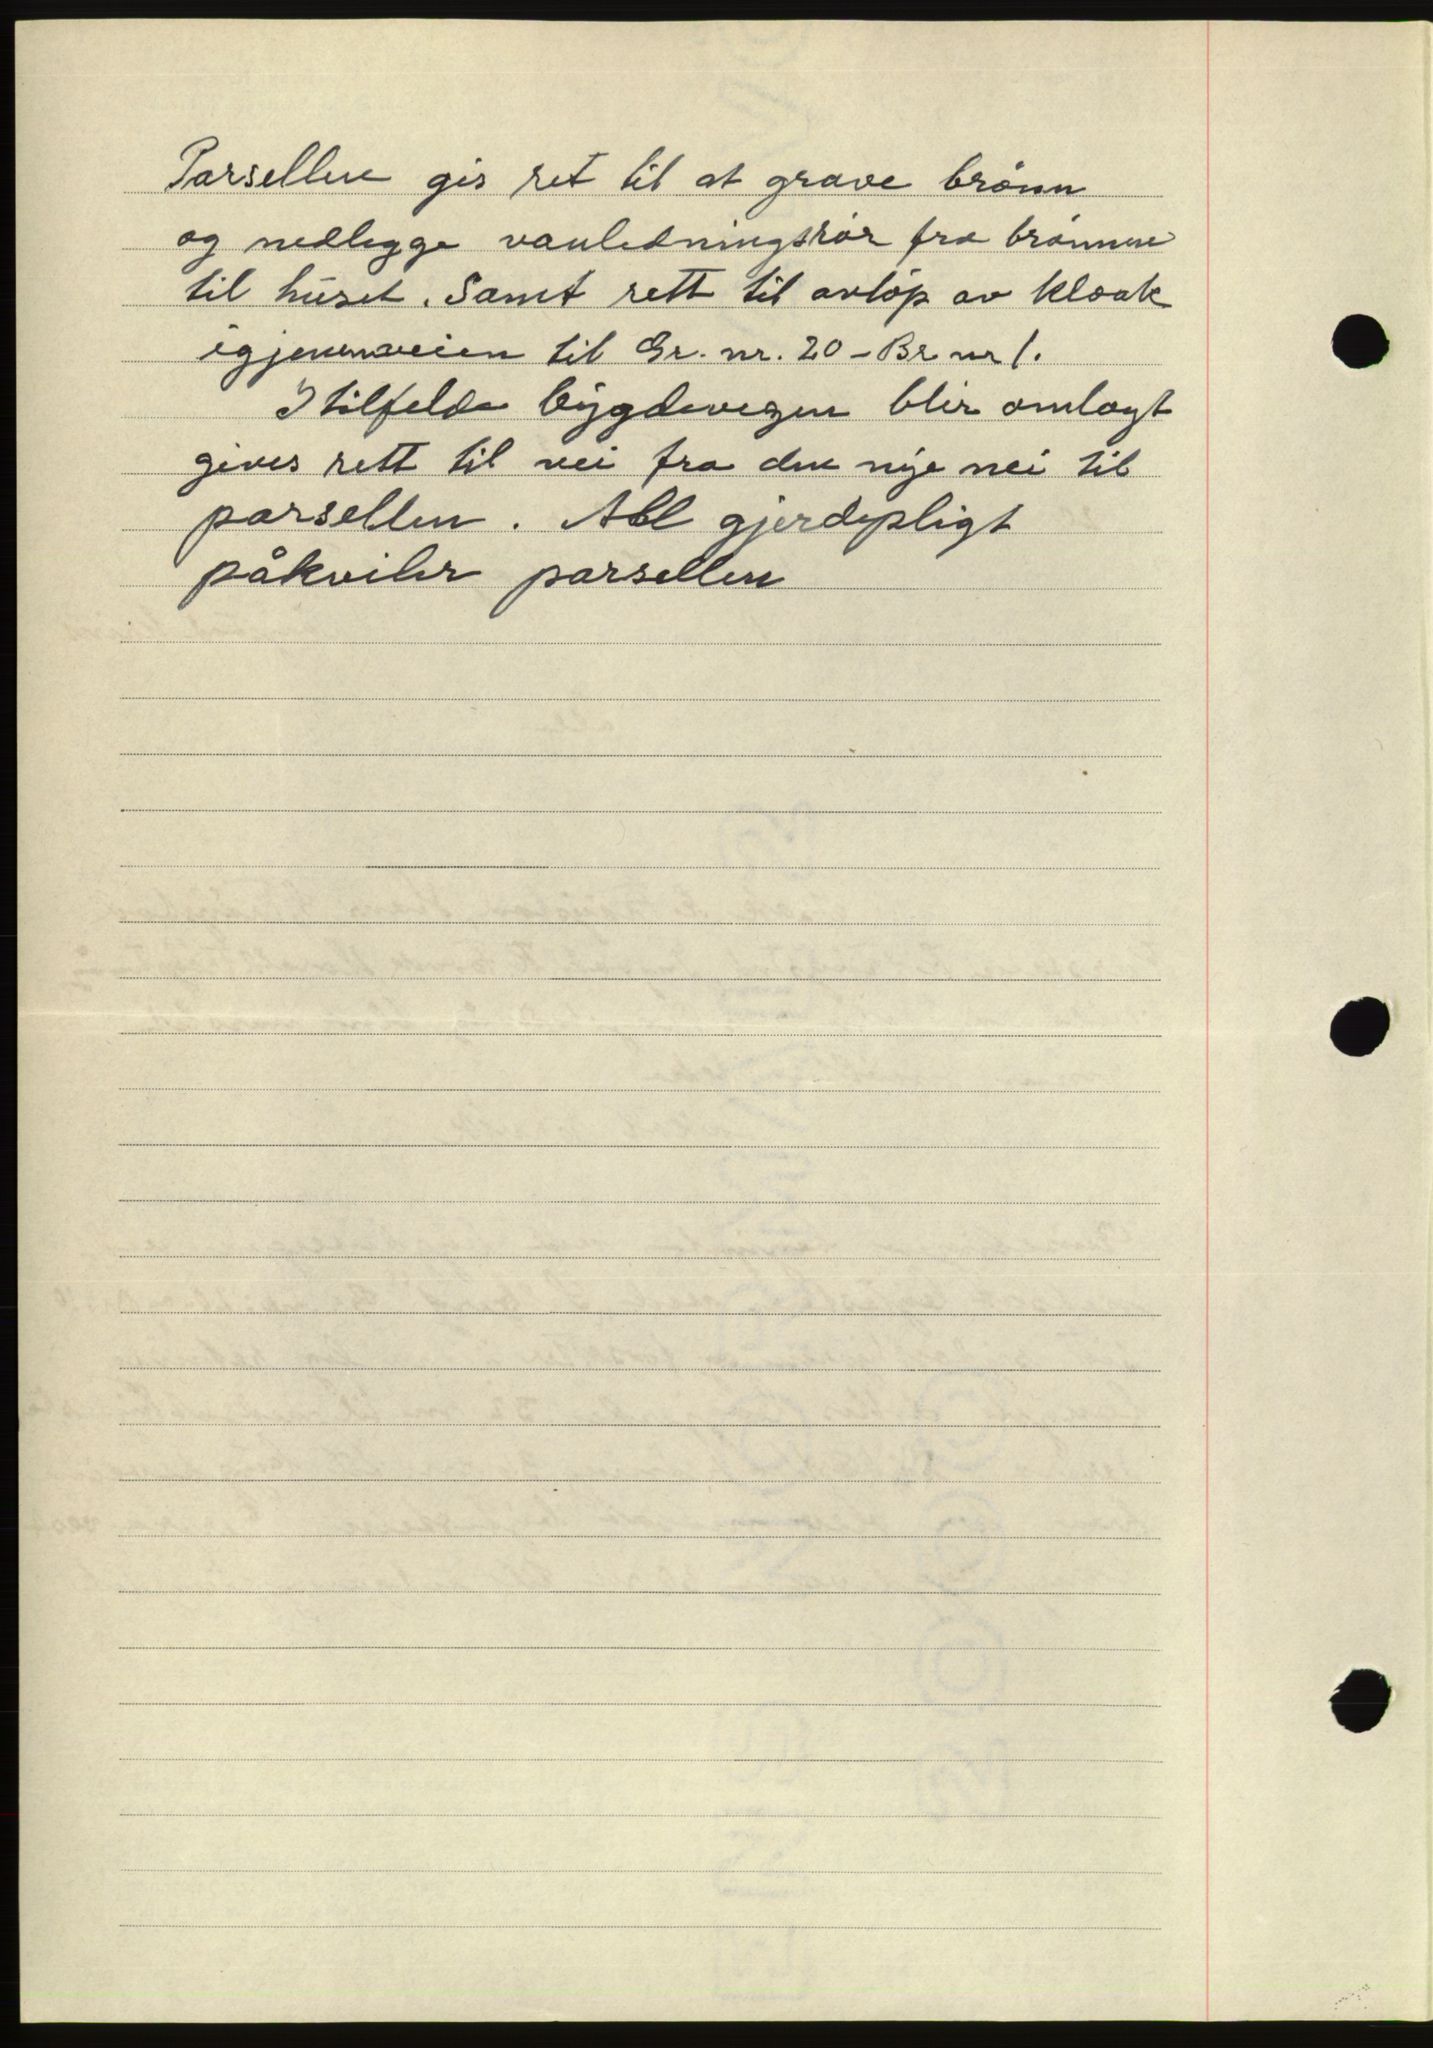 Parsellen gis ret til at grave brønn
og nedlegge vanledningsrør fra brønnen
til huset. Samt rett til avløp av kloak
igjennem veien til Gr. nr. 20 - Br nr 1.
I tilfelde bygdevegen blir omlagt
gives rett til vei fra den nye vei til
parsellen. All gjerdepligt
påkviler parsellen